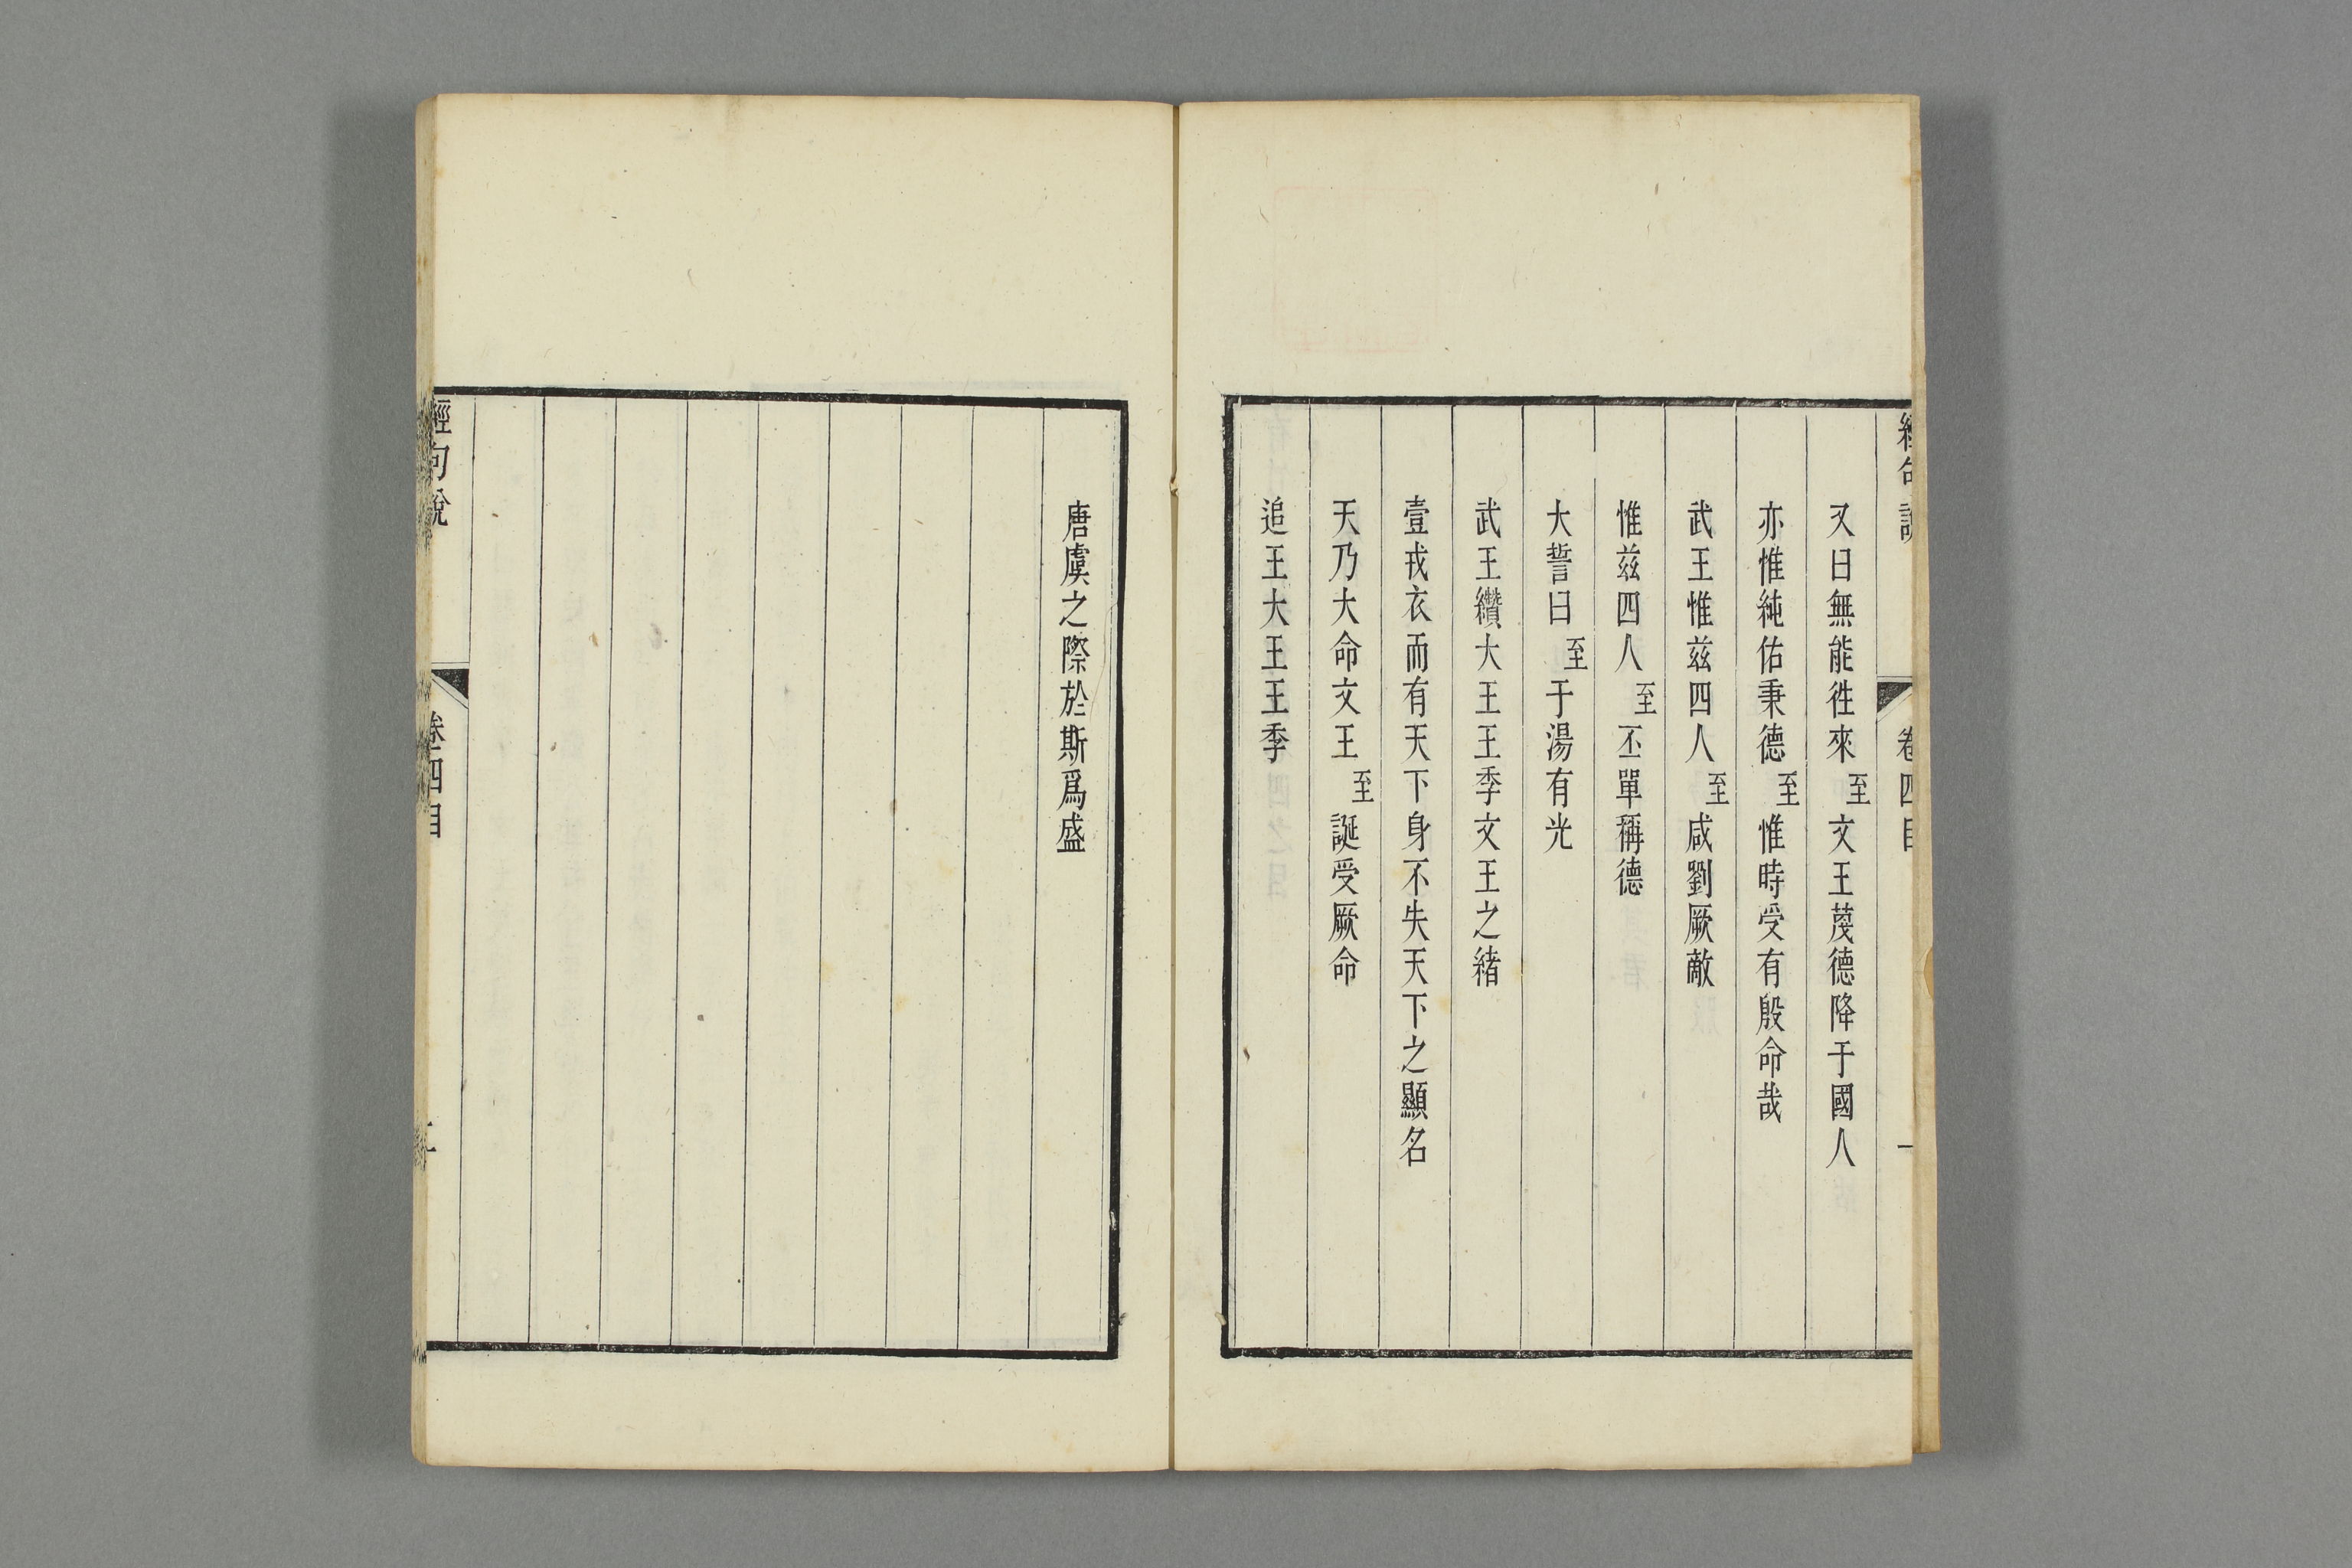 經句說 卷四目 一
又曰無能徃來至文王蔑德降于國人
亦惟純佑秉德至惟時受有殷命哉
武王惟兹四人至咸劉厥敵
惟兹四人至丕單稱德
大誓曰至于湯有光
武王纘大王王季文王之緒
壹戎衣而有天下身不失天下之顯名
天乃大命文王至誕受厥命
追王大王王季
唐虞之際於斯爲盛
經句說 卷四目 二